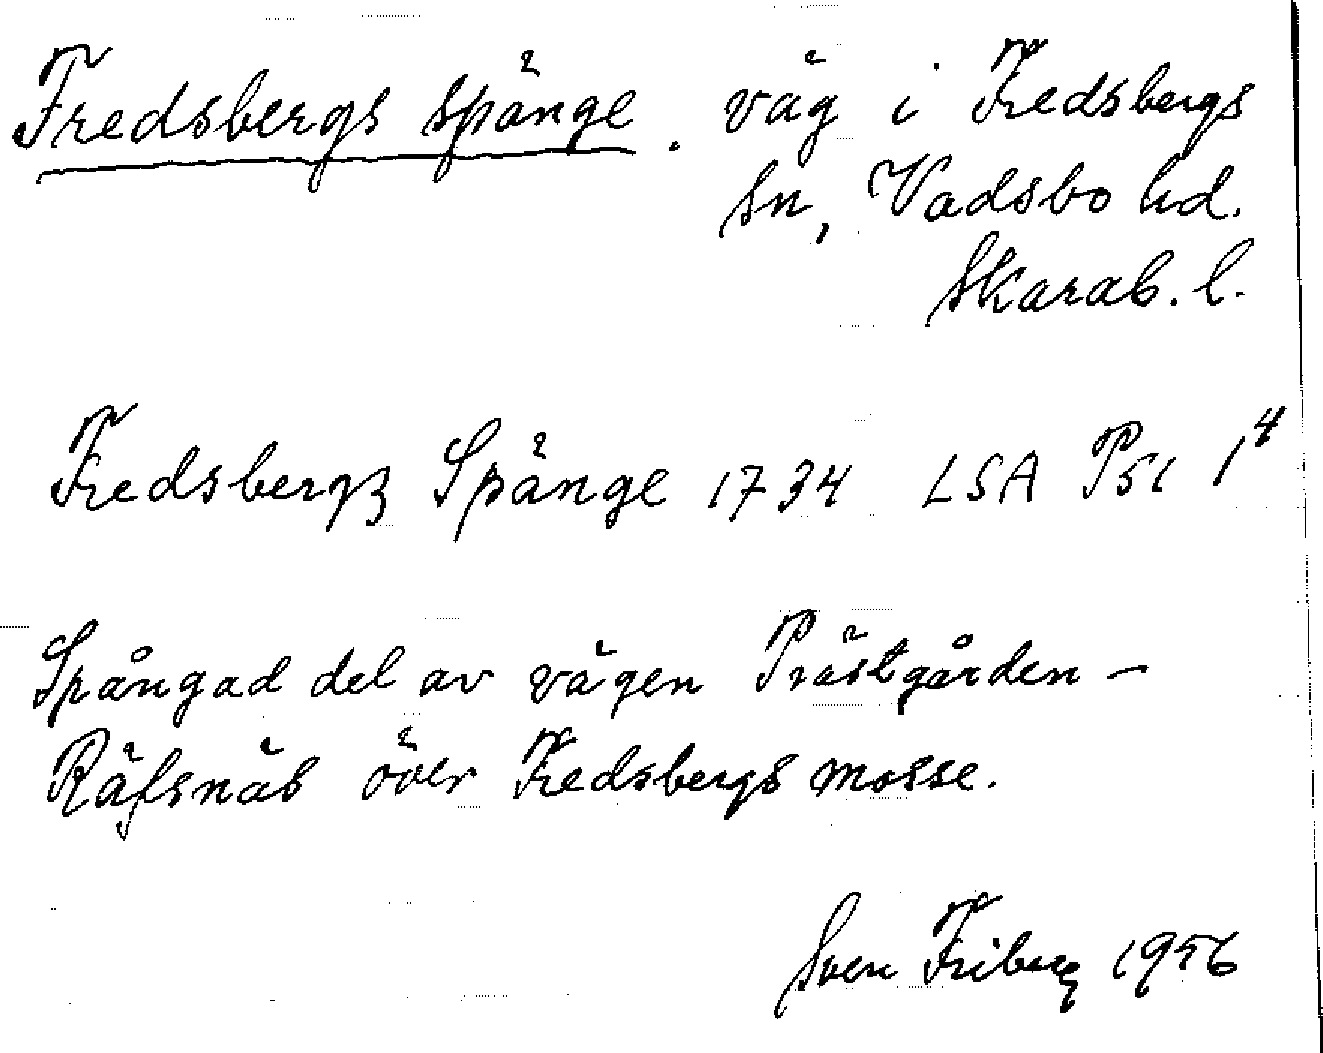 Fredsbergs spänge. väg i Fredsbergs
sn, Vadsbo hd.
Skarab. l.
Fredsbergß Spänge 1734 LSA P51 1⁴
Spångad del av vägen Prästgården –
Räfsnäs över Fredsbergs mosse.
Sven Friberg 1956